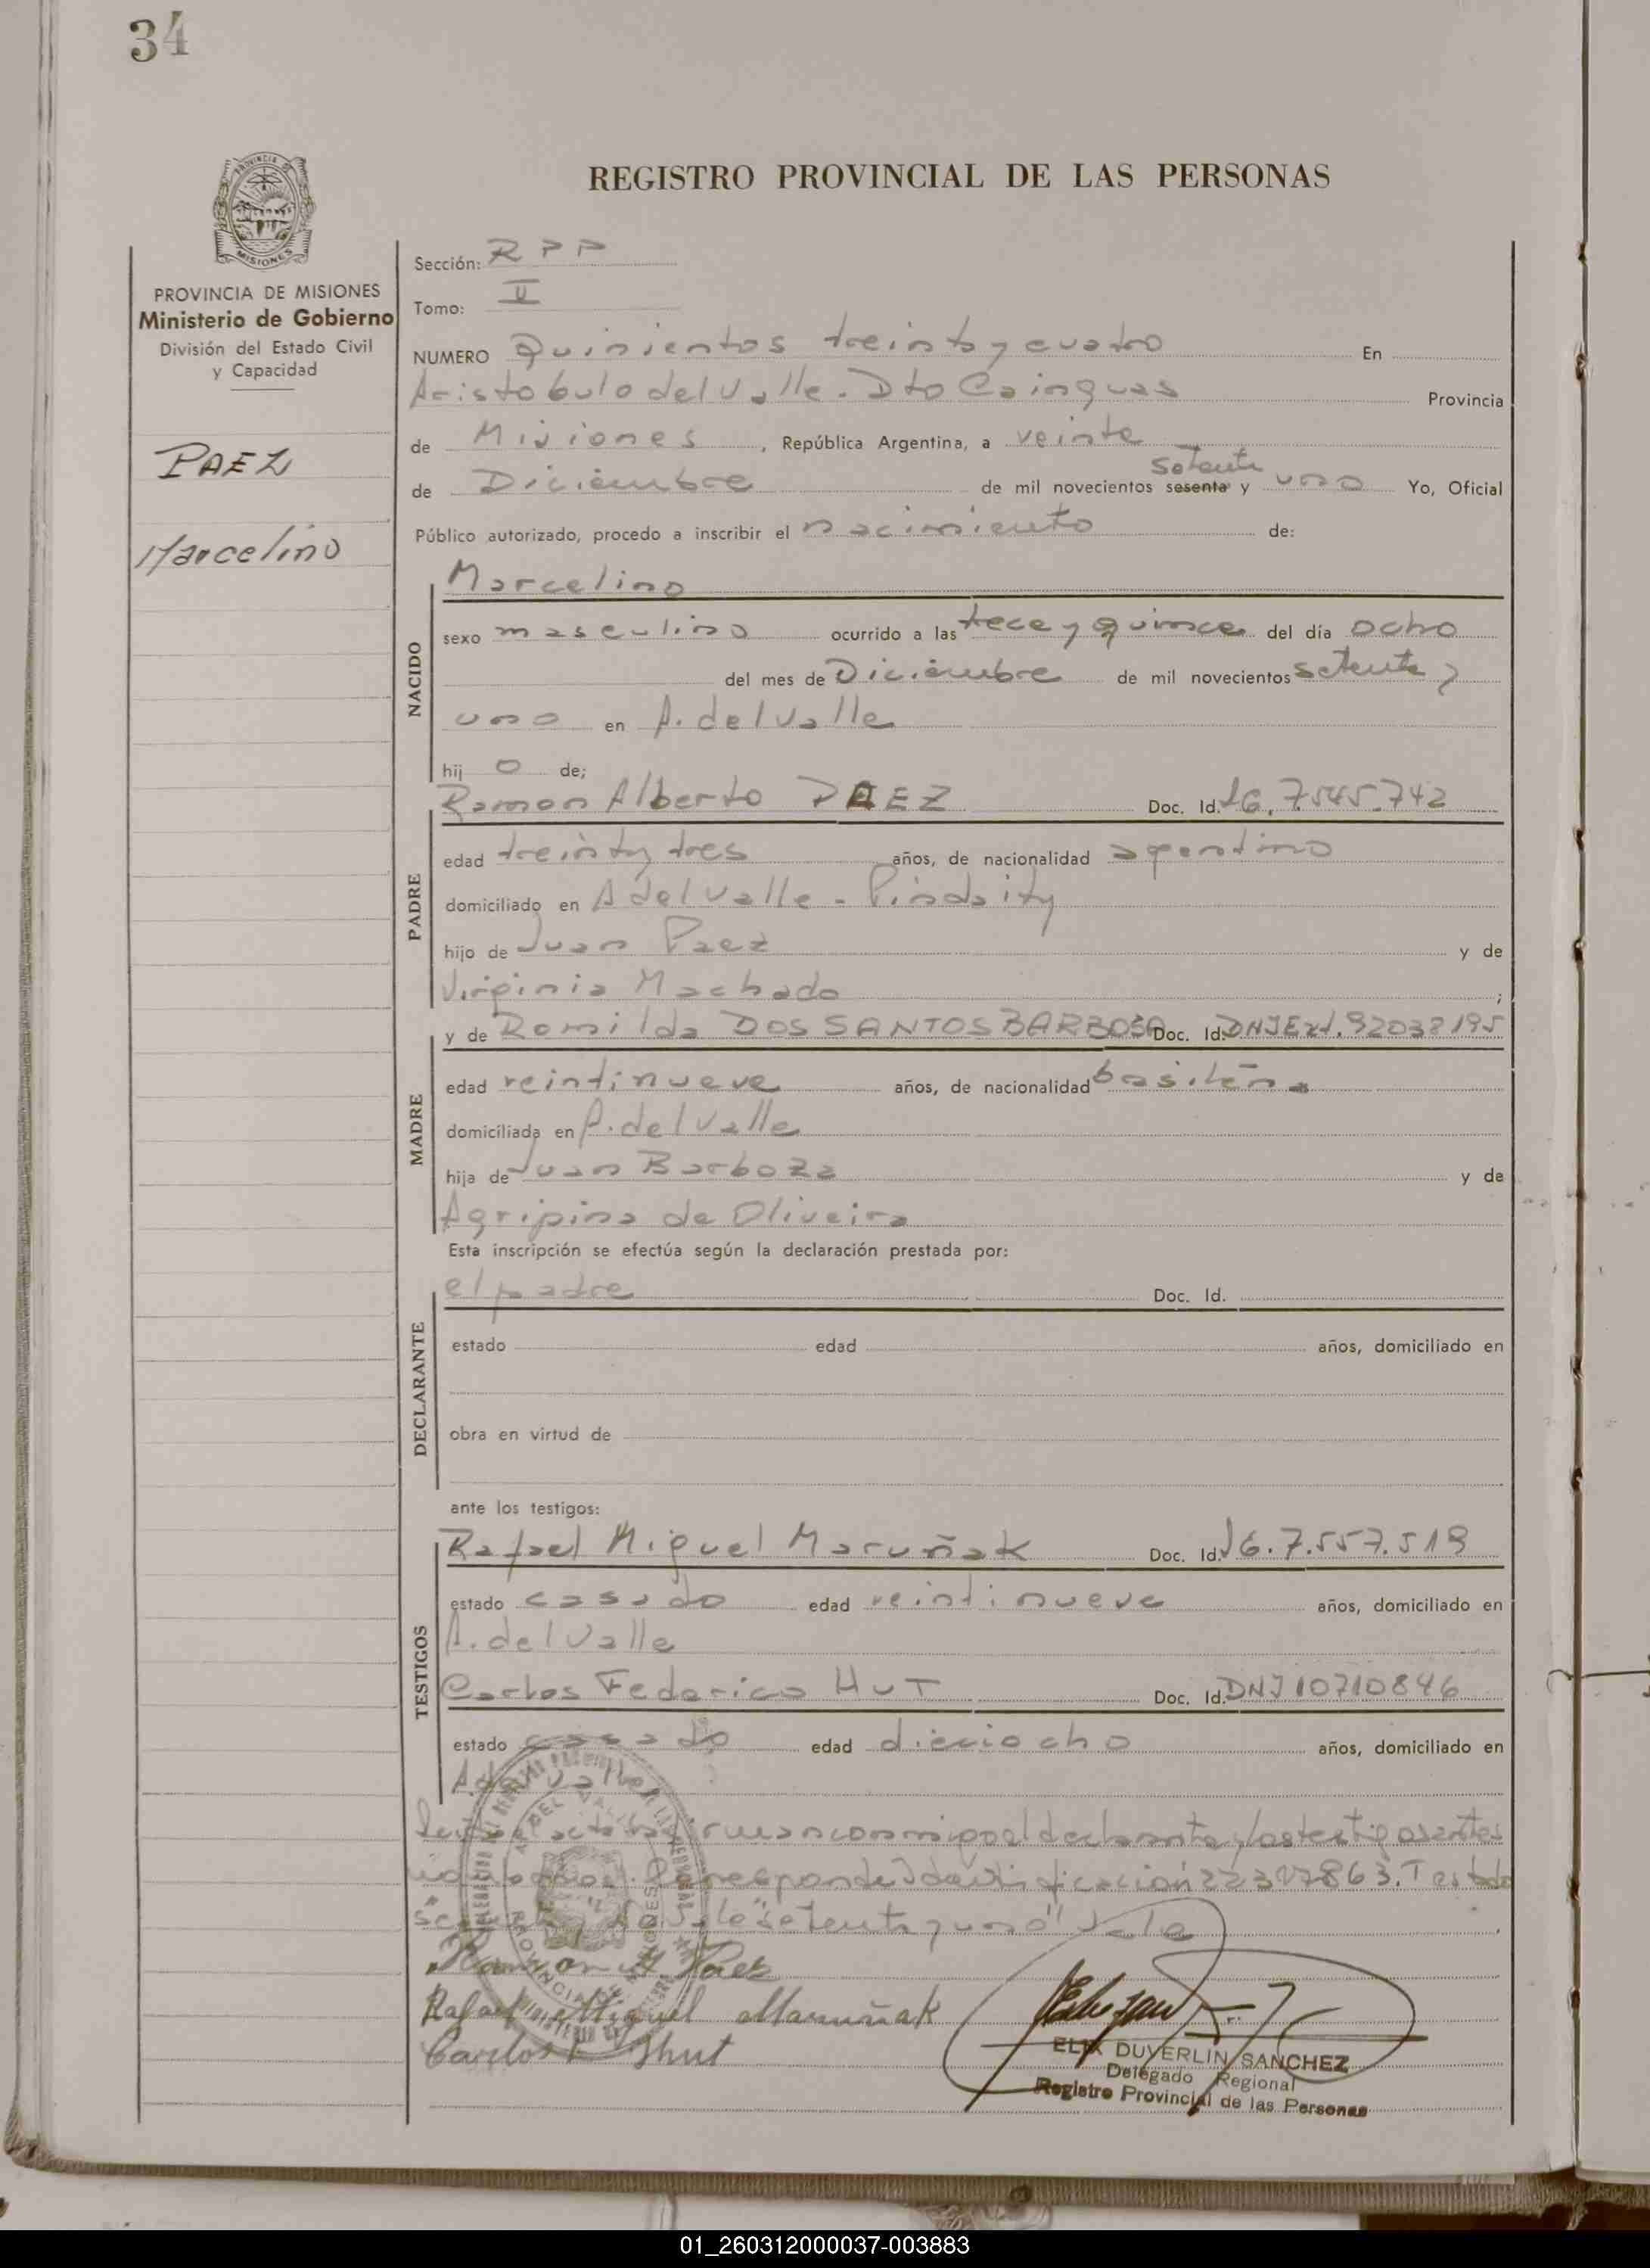 34
REGISTRO PROVINCIAL DE LAS PERSONAS
PROVINCIA DE MISIONES
Ministerio de Gobierno
División del Estado Civil
y Capacidad
PAEZ
Marcelino
Sección: R P P
Tomo: II
NUMERO Quinientos treinta y cuatro En
Aristobulo del Valle. Dto Cainguas Provincia
de Misiones, República Argentina, a veinte
setenta
de Diciembre de mil novecientos sesenta y uno Yo, Oficial
Público autorizado, procedo a inscribir el nacimiento de:
NACIDO
Marcelino
sexo masculino ocurrido a las trece y quince del día ocho
del mes de Diciembre de mil novecientos setenta y
uno en A. del Valle
hij o de;
PADRE
Ramon Alberto PAEZ Doc. Id. 7.545.742
edad treinta y tres años, de nacionalidad argentino
domiciliado en A del Valle - Pindaity
hijo de Juan Paez y de
Virginia Machado;
MADRE
y de Romilda DOS SANTOS BARBOSA Doc. Id. DNJ Ext. 92032195
edad veintinueve años, de nacionalidad
domiciliada en A. del Valle
hija de Juan Barboza y de
Agripina de Oliveira
Esta inscripción se efectúa según la declaración prestada por:
DECLARANTE
el padre Doc. Id.
estado edad años, domiciliado en
obra en virtud de
ante los testigos:
TESTIGOS
Rafael Miguel Maruñak Doc. Id. 7.557.519
estado casado edad veintinueve años, domiciliado en
A. del Valle
Carlos Federico HUT Doc. Id. DNJ 10710846
estado casado edad dieciocho años, domiciliado en
A del Valle
firman conmigo el declarante y los testigos antes
Corresponde 22317863. Testado
"setenta y uno" Vale
Ramon A. Paez
Rafael Miguel Maruñak
Carlos F Shut
ELIX DUVERLIN SANCHEZ
Delegado Regional
Registro Provincial de las Personas
01_260312000037-003883